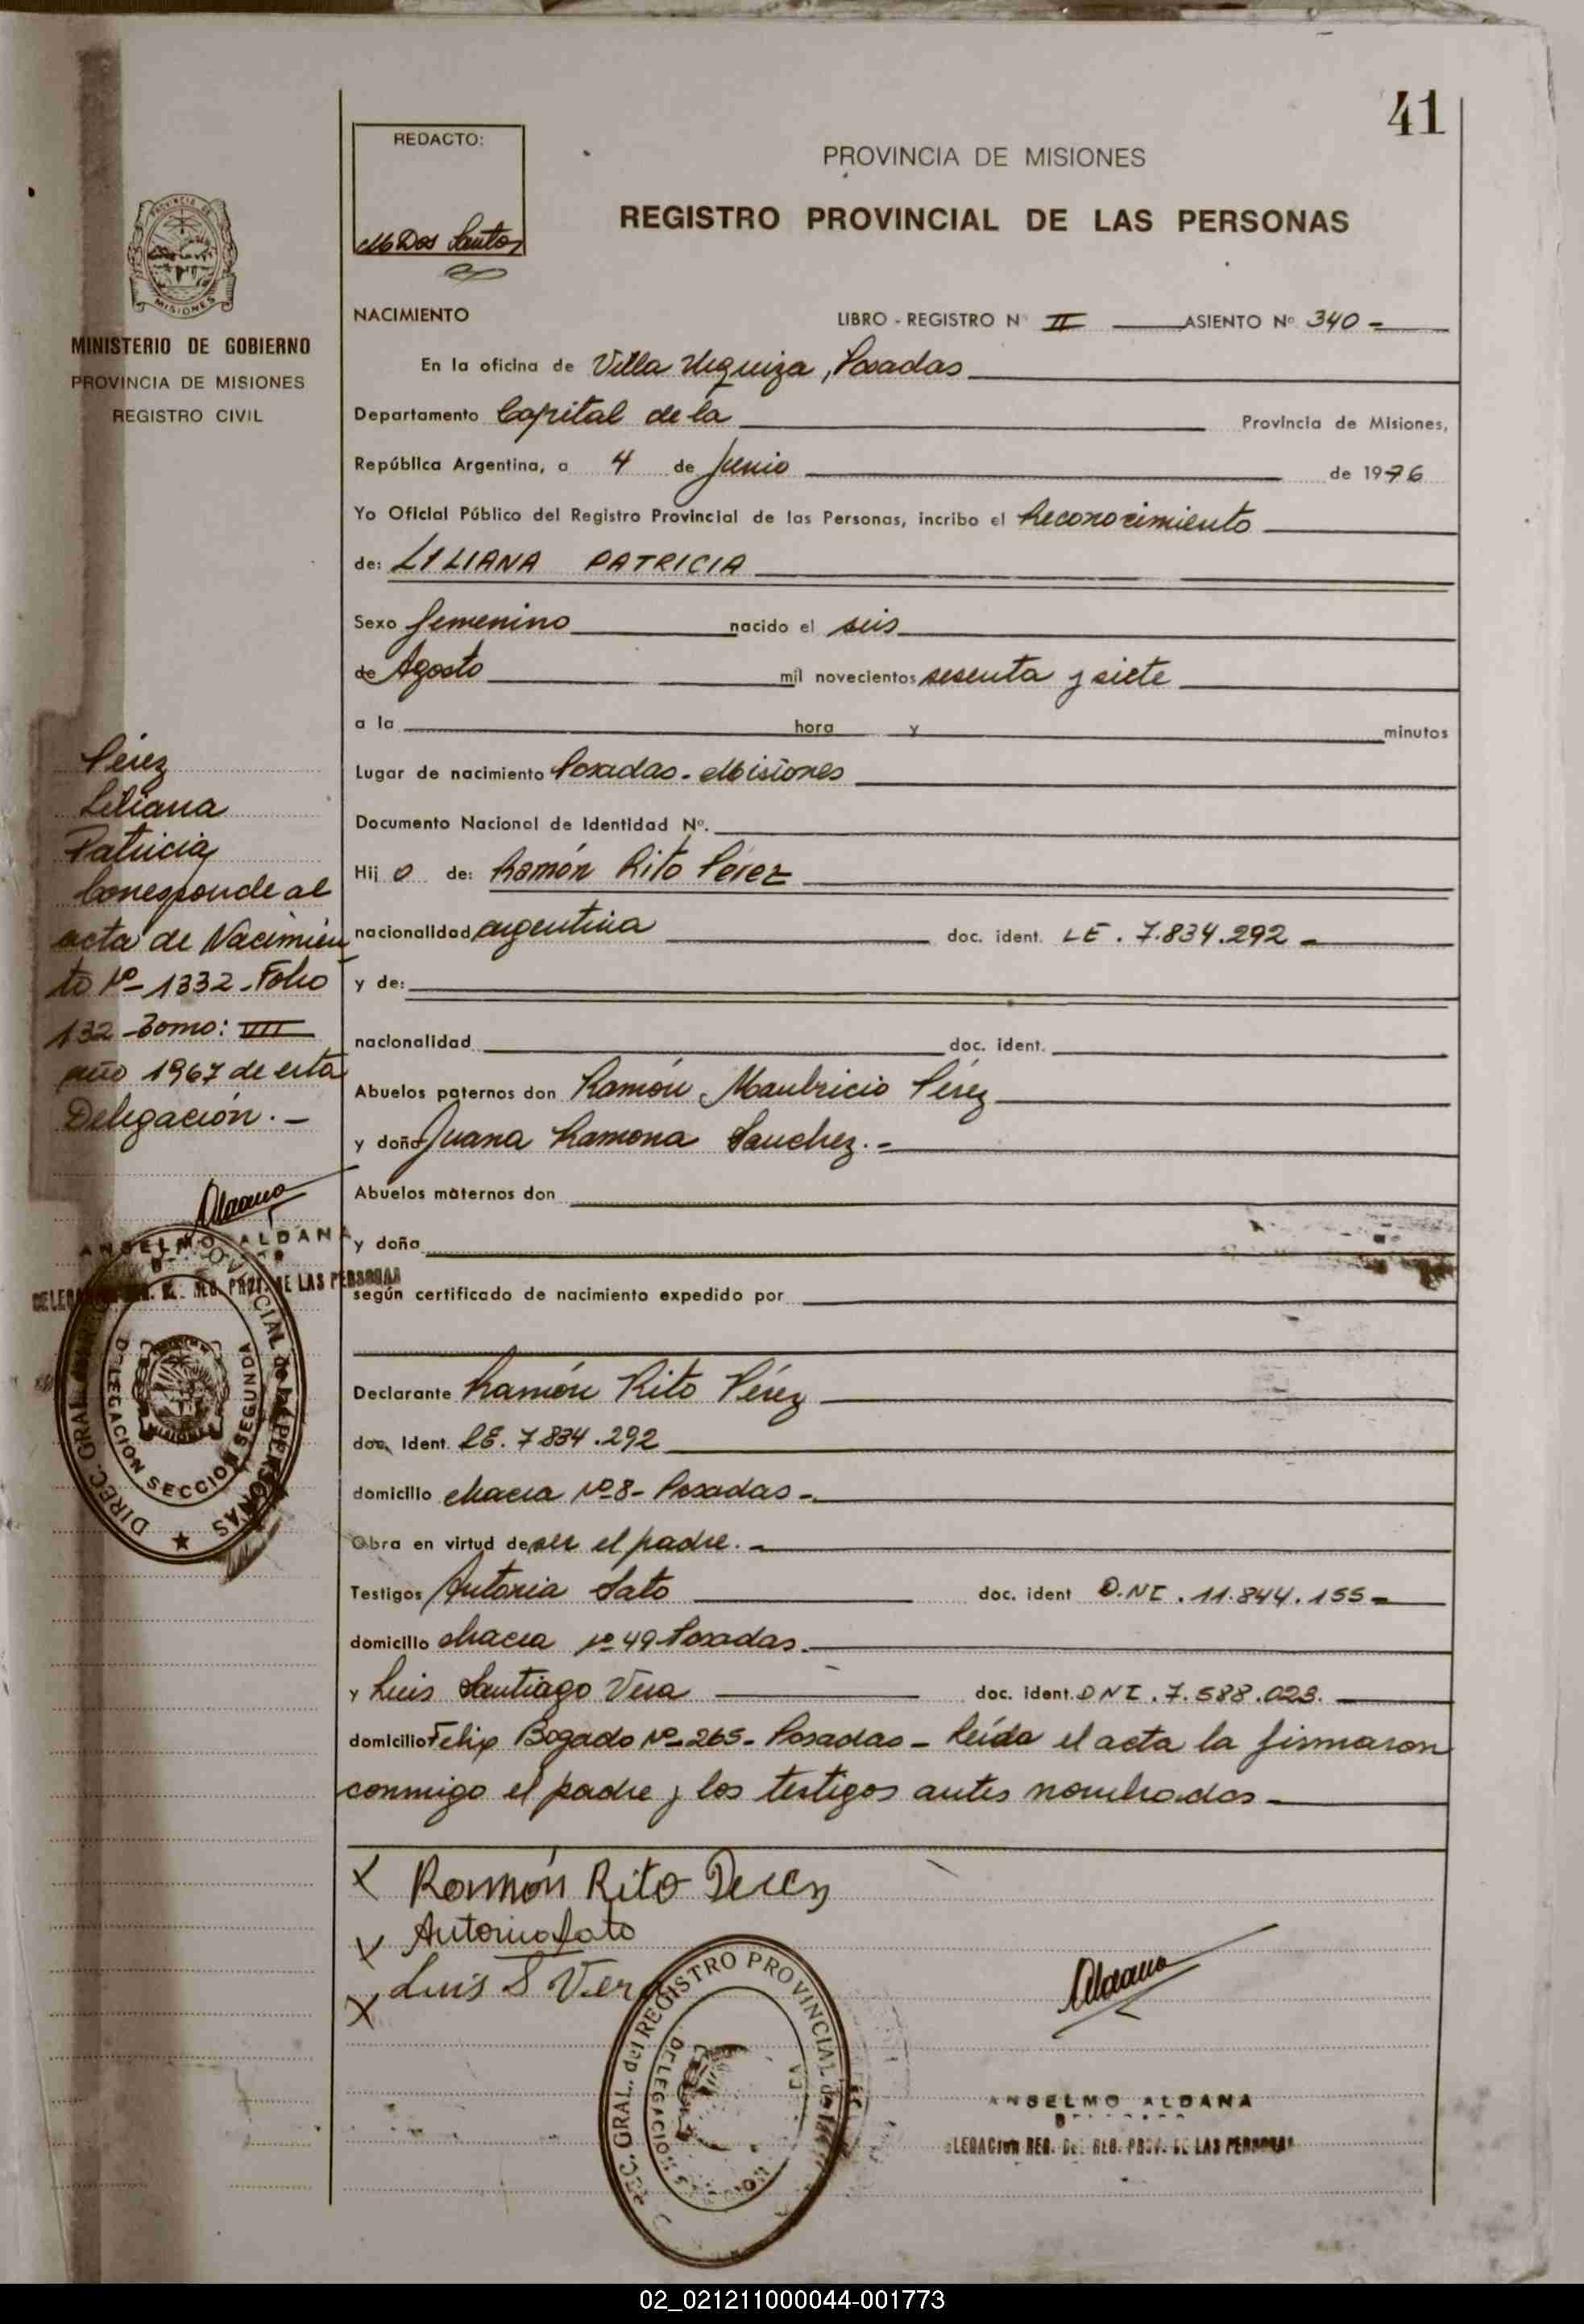 41
REDACTO:
M Dos Santos
PROVINCIA DE MISIONES
REGISTRO PROVINCIAL DE LAS PERSONAS
PROVINCIA DE
MISIONES
MINISTERIO DE GOBIERNO
PROVINCIA DE MISIONES
REGISTRO CIVIL
NACIMIENTO
LIBRO - REGISTRO N° II ASIENTO Nº 340 -
En la oficina de Villa Urquiza, Posadas
Departamento Capital de la Provincia de Misiones,
República Argentina, a 4 de Junio de 1976
Yo Oficial Público del Registro Provincial de las Personas, incribo el Reconocimiento
de: LILIANA PATRICIA
Sexo femenino nacido el seis
de Agosto mil novecientos sesenta y siete
a la hora y minutos
Lugar de nacimiento Posadas - Misiones
Documento Nacional de Identidad Nº.
Hij o de: Ramón Rito Pérez
nacionalidad argentina doc. ident. LE. 7.834.292 -
y de:
nacionalidad doc. ident.
Abuelos paternos don Ramón Maubricio Pérez
y doña Juana Ramona Sanchez. -
Abuelos maternos don
y doña
según certificado de nacimiento expedido por
Declarante Ramón Rito Pérez
doc. Ident. LE. 7834.292
domicilio chacra Nº 8 - Posadas -
Obra en virtud de ser el padre. -
Testigos Antonia Sato doc. ident D.NI. 11.844.155 -
domicilio chacra Nº 49 Posadas.
y Luis Santiago Vera doc. ident. DNI. 7.588.023.
domicilio Felix Bogado Nº 265 - Posadas - Leída el acta la firmaron
conmigo el padre y los testigos antes nombrados -
Pérez
Liliana
Patricia
Corresponde al
acta de Nacimien
to Nº 1332 - Folio
132 - Tomo: VII
año 1967 de esta
Delegación. -
Aldana
ANSELMO ALDANA
REG. PROV. DE LAS PERSONAS
DIREC. GRAL. PROVINCIAL de las PERSONAS
DELEGACION SECCION SEGUNDA
MISIONES
X Ramón Rito Perez
X Antonia Sato
X Luis S Vera
Aldana
DIREC. GRAL. del REGISTRO PROVINCIAL de las
DELEGACION SECCION
ANSELMO ALDANA
DELEGACION REG. DEL REG. PROV. DE LAS PERSONAS
02_021211000044-001773